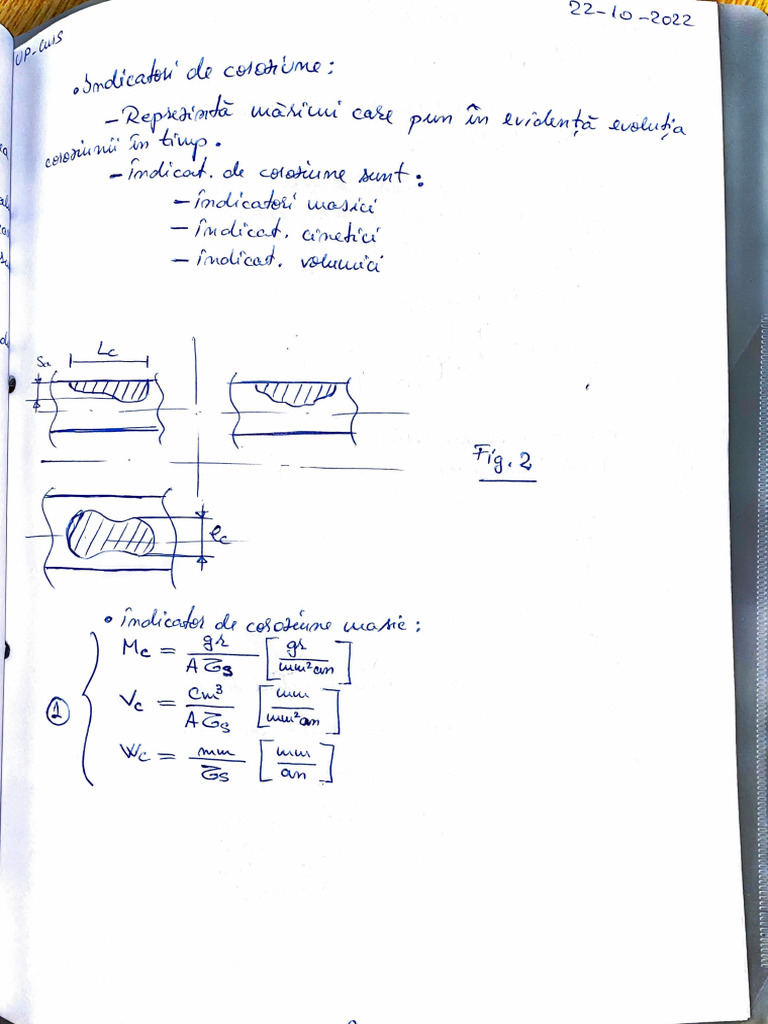 22-10-2022
UP-curs
• Indicatori de coroziune:
- Reprezintă mărimi care pun în evidență evoluția
coroziunii în timp.
- îndicat. de coroziune sunt:
- îndicatori masici
- îndicat. cinetici
- îndicat. volumici
Lc
Fig. 2
lc
• îndicator de coroziune masic:
Mc = gr / A τs [gr / mm² an]
① Vc = cm³ / A τs [mm / mm² an]
Wc = mm / τs [mm / an]